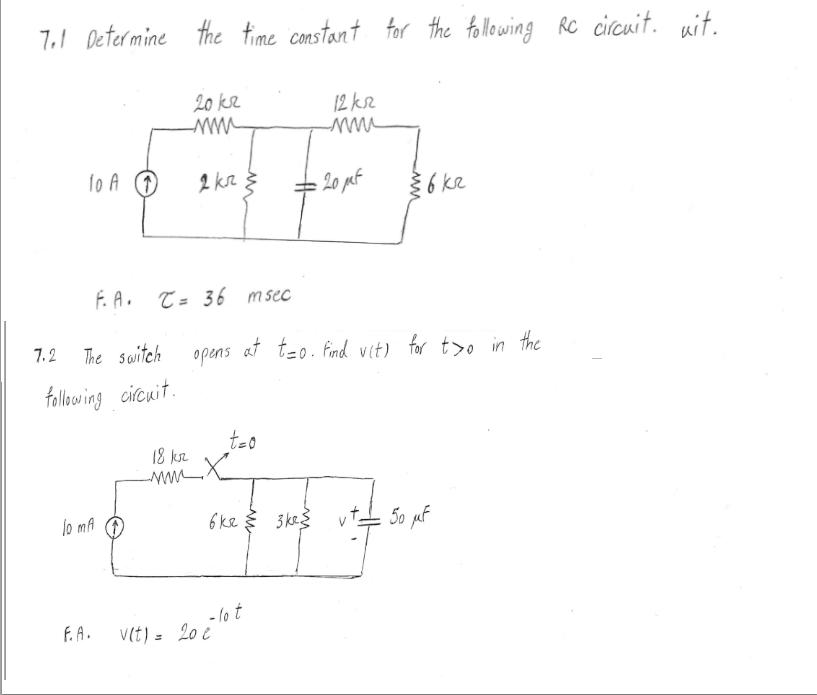 7.1 Determine the time constant for the following RC circuit. uit.
20 kΩ 12 kΩ
10 A 2 kΩ 20 µf 6 kΩ
F.A. τ = 36 msec
7.2 The switch opens at t=0. Find v(t) for t>0 in the
following circuit.
t=0
18 kΩ
10 mA 6kΩ 3kΩ v + - 50 µF
F.A. v(t) = 20 e^-10t